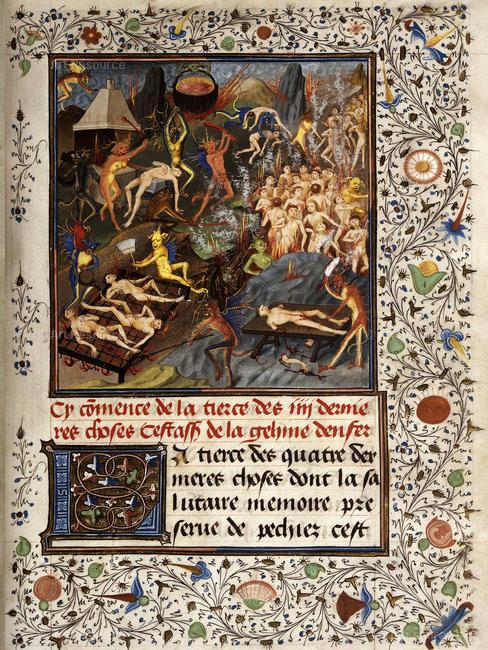 Cy cōmence de la tierce des iiij dernie
res choses Cestass de la gehine denfer
La tierce des quatre der
nieres choses dont la sa
lutaire memoire pre
serue de pechiez cest